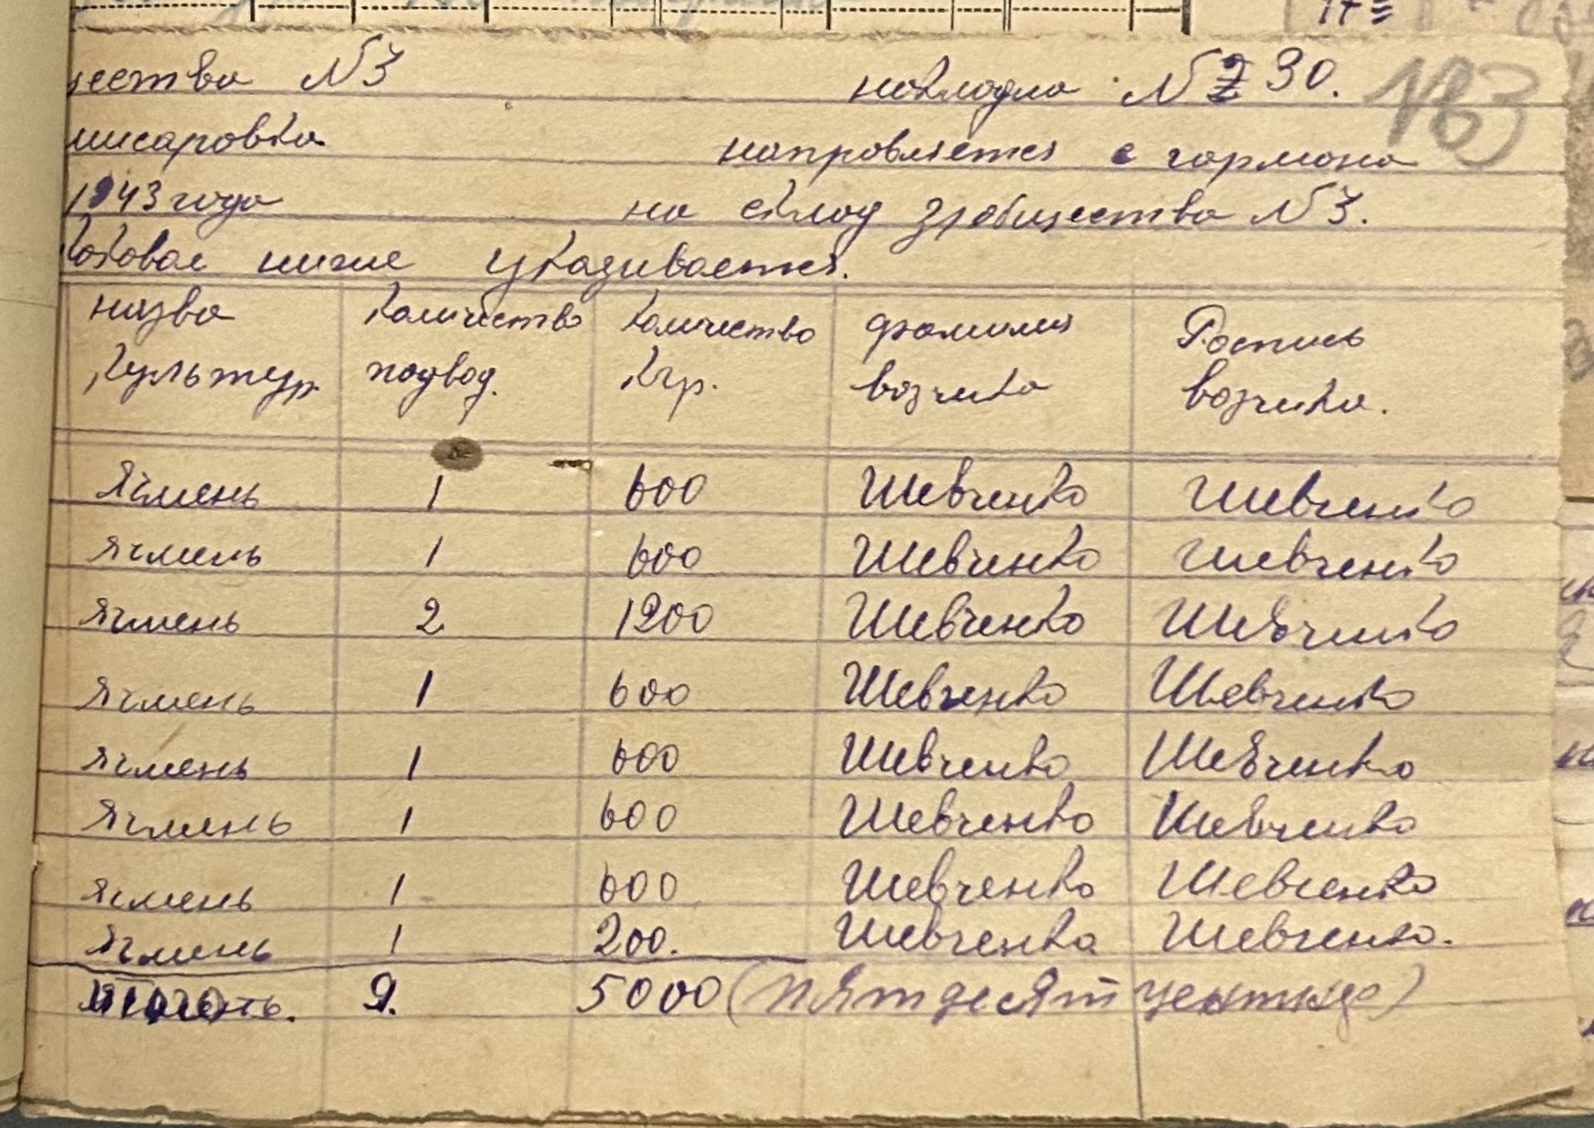 чества N3 накладна N 30. 163
мисаровка направляется с гармана
1943 года на склад зробщества N3.
какавое ниже указивается.
назва Количество Количество фамилия Роспись
культур. подвод. Кгр. возчика возчика.
Ячмень 1 600 Шевченко Шевченко
Ячмень 1 600 Шевченко Шевченко
Ячмень 2 1200 Шевченко Шевченко
Ячмень 1 600 Шевченко Шевченко
Ячмень 1 600 Шевченко Шевченко
Ячмень 1 600 Шевченко Шевченко
Ячмень 1 600 Шевченко Шевченко
Ячмень 1 200. Шевченко Шевченко.
9. 5000 (пятдесят центнер)